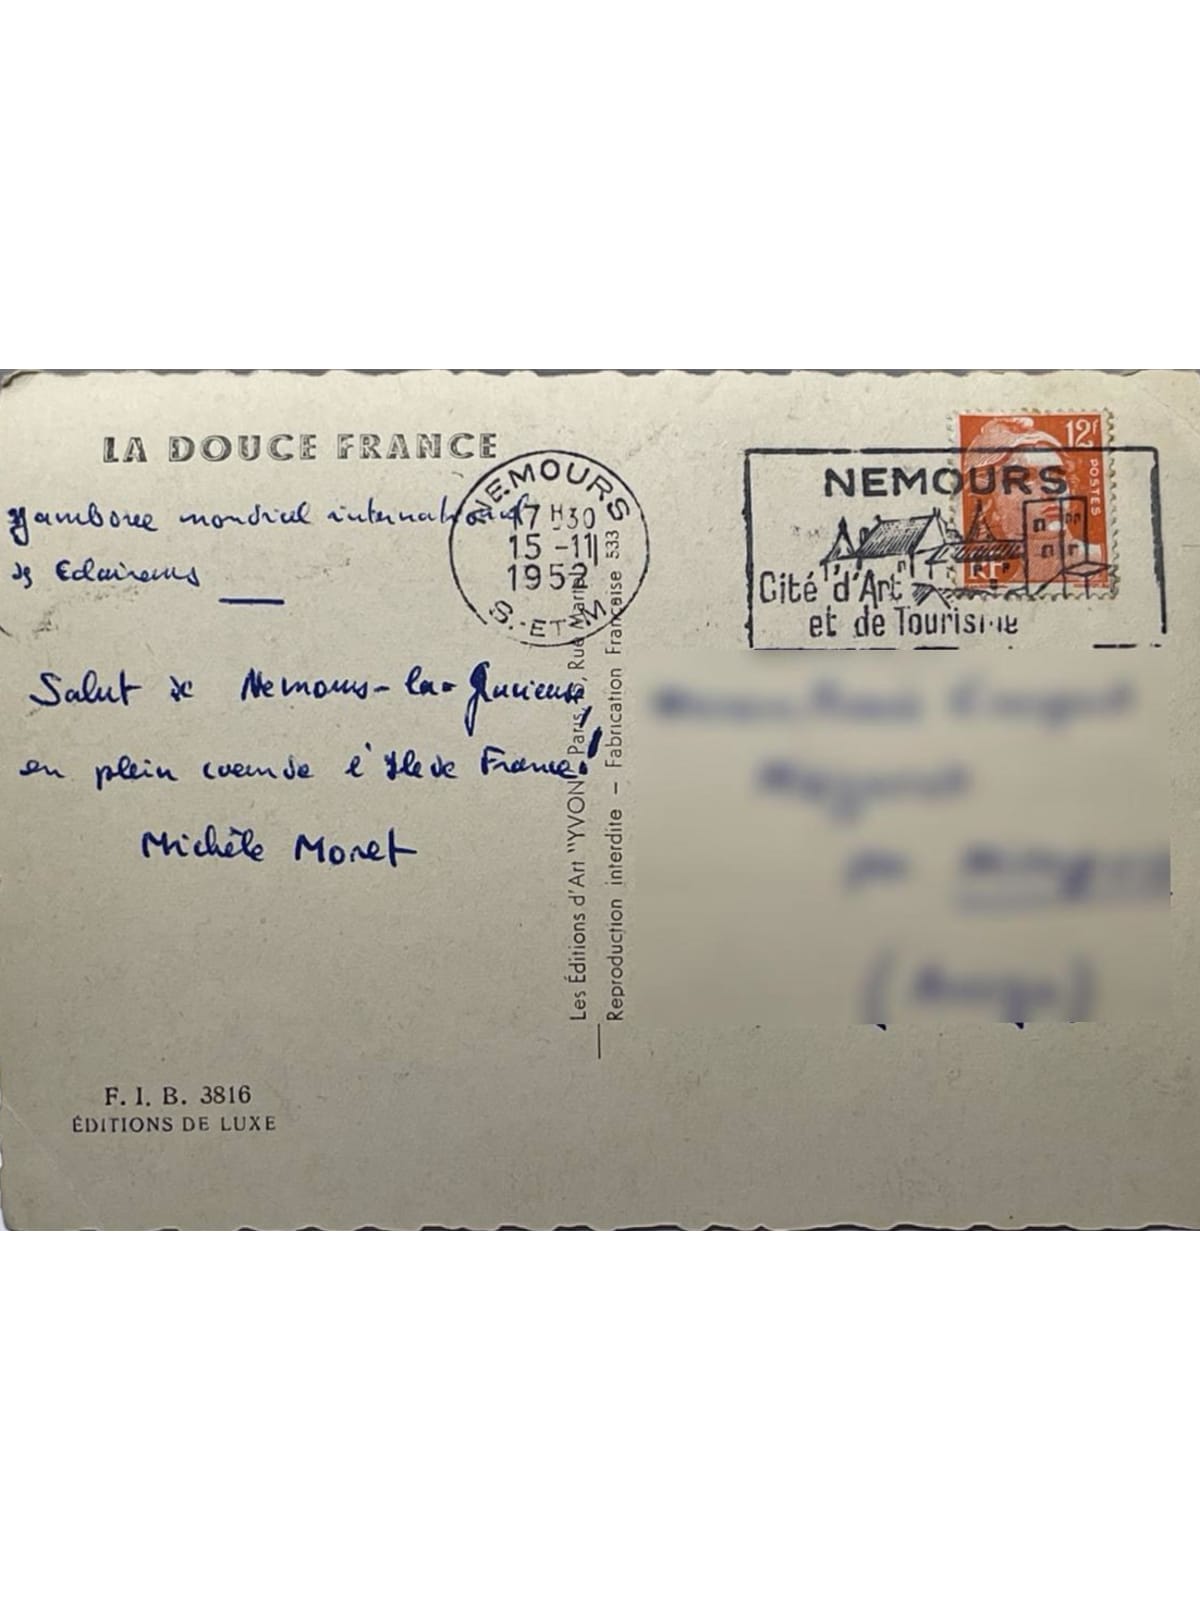 LA DOUCE FRANCE
Jamboree mondial international
de Eclaireurs
Salut de Nemours-la-Glorieuse,
en plein coeur de l'Ile de France!
Michèle Moret
F. I. B. 3816
ÉDITIONS DE LUXE
NEMOURS
17 H 30
15 -11
1952
S.-ET-M
Les Éditions d'Art "YVON" Paris, 15, Rue Martel
Reproduction interdite – Fabrication Française 533
12f
POSTES
RF
NEMOURS
Cité d'Art
et de Tourisme